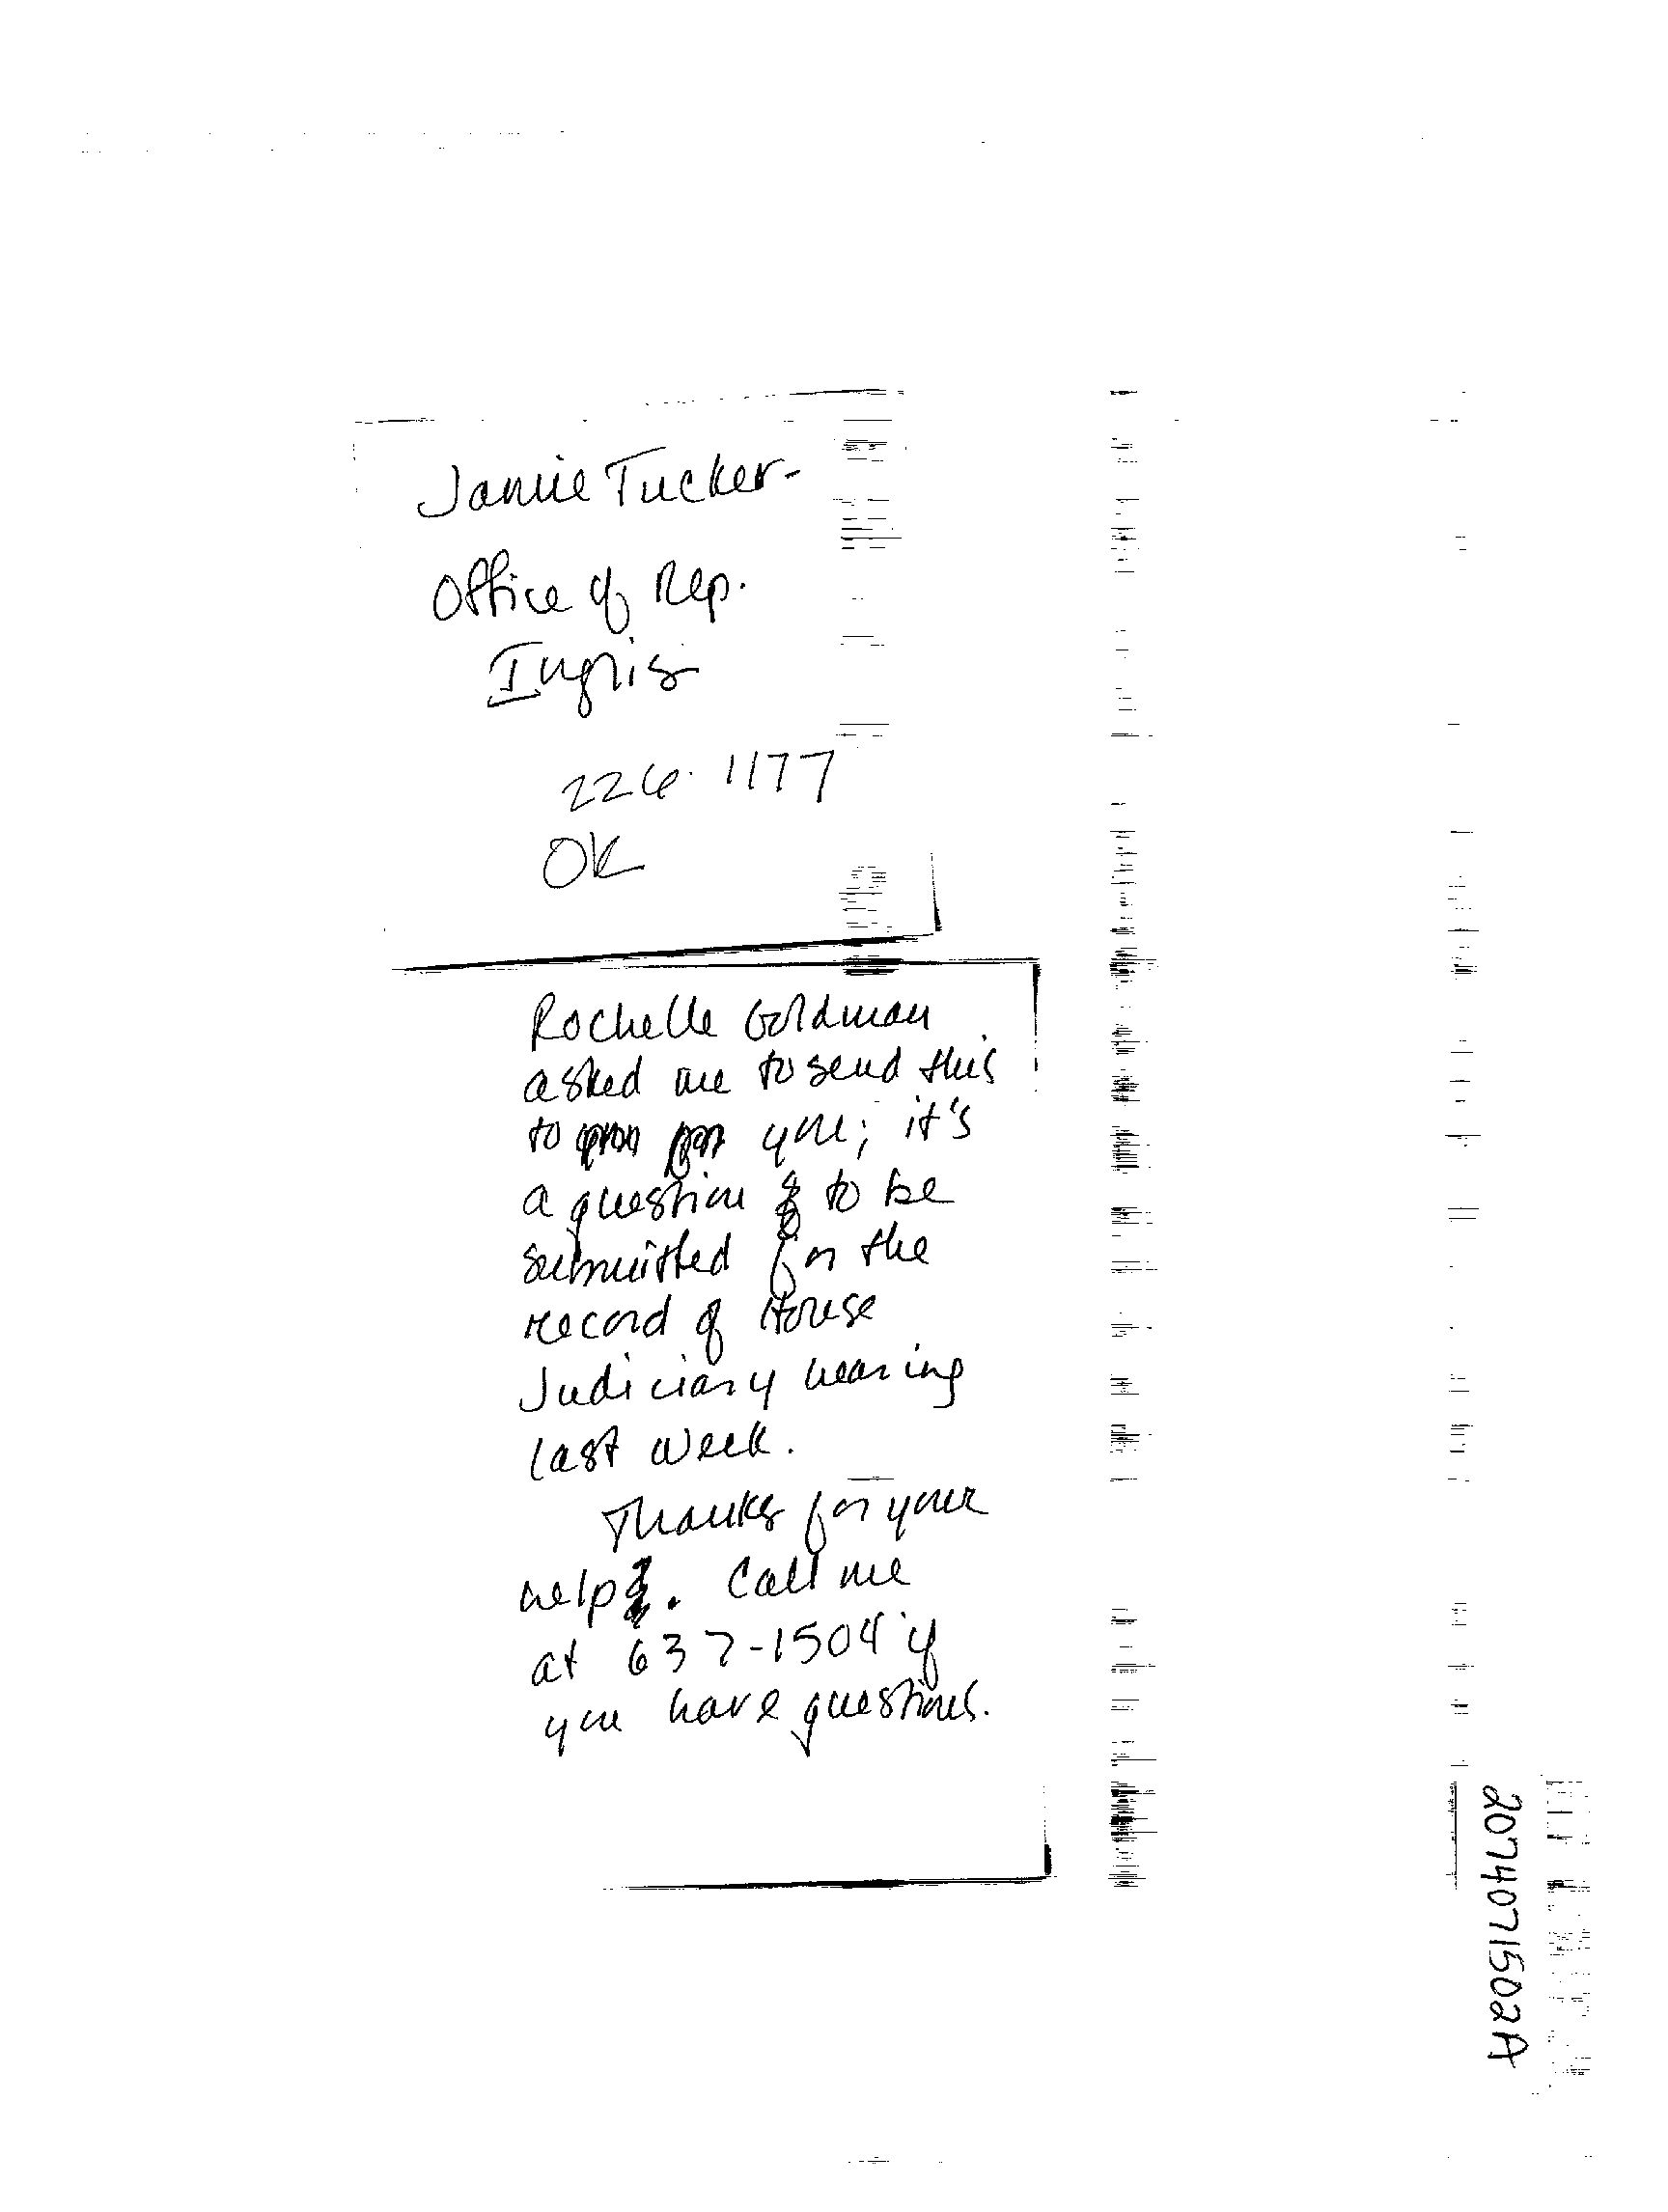 Jamie Tucker-
Office of Rep.
Inglis
226-1177
OK
Rochelle Goldman
asked me to send this
to you; it's
a question to be
submitted for the
record of House
Judiciary hearing
last week.
Thanks for your
help. Call me
at 637-1504 if
you have questions.
2074071502A